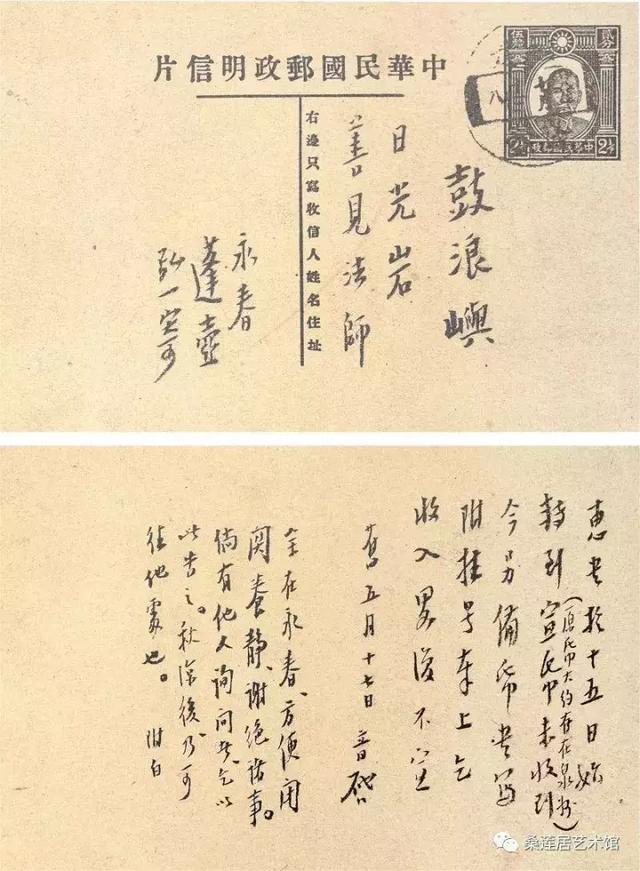 中華民國郵政明信片
2½
中華民國郵政
鼓浪嶼
日光岩
善見法師
右邊只寫收信人姓名住址
永春
蓬壺
弘一寄
惠書於十五日始
轉到宣帋未收到
(原帋大約存在泉州)
今另備帋書寫
附挂号奉上乞
收入畧復不宣
舊五月十七日 音啓
余在永春、方便閉
関養靜、謝絕諸事。
倘有他人詢問者、乞以
此告之。秋涼後乃可
往他處也。 附白
桑莲居艺术馆